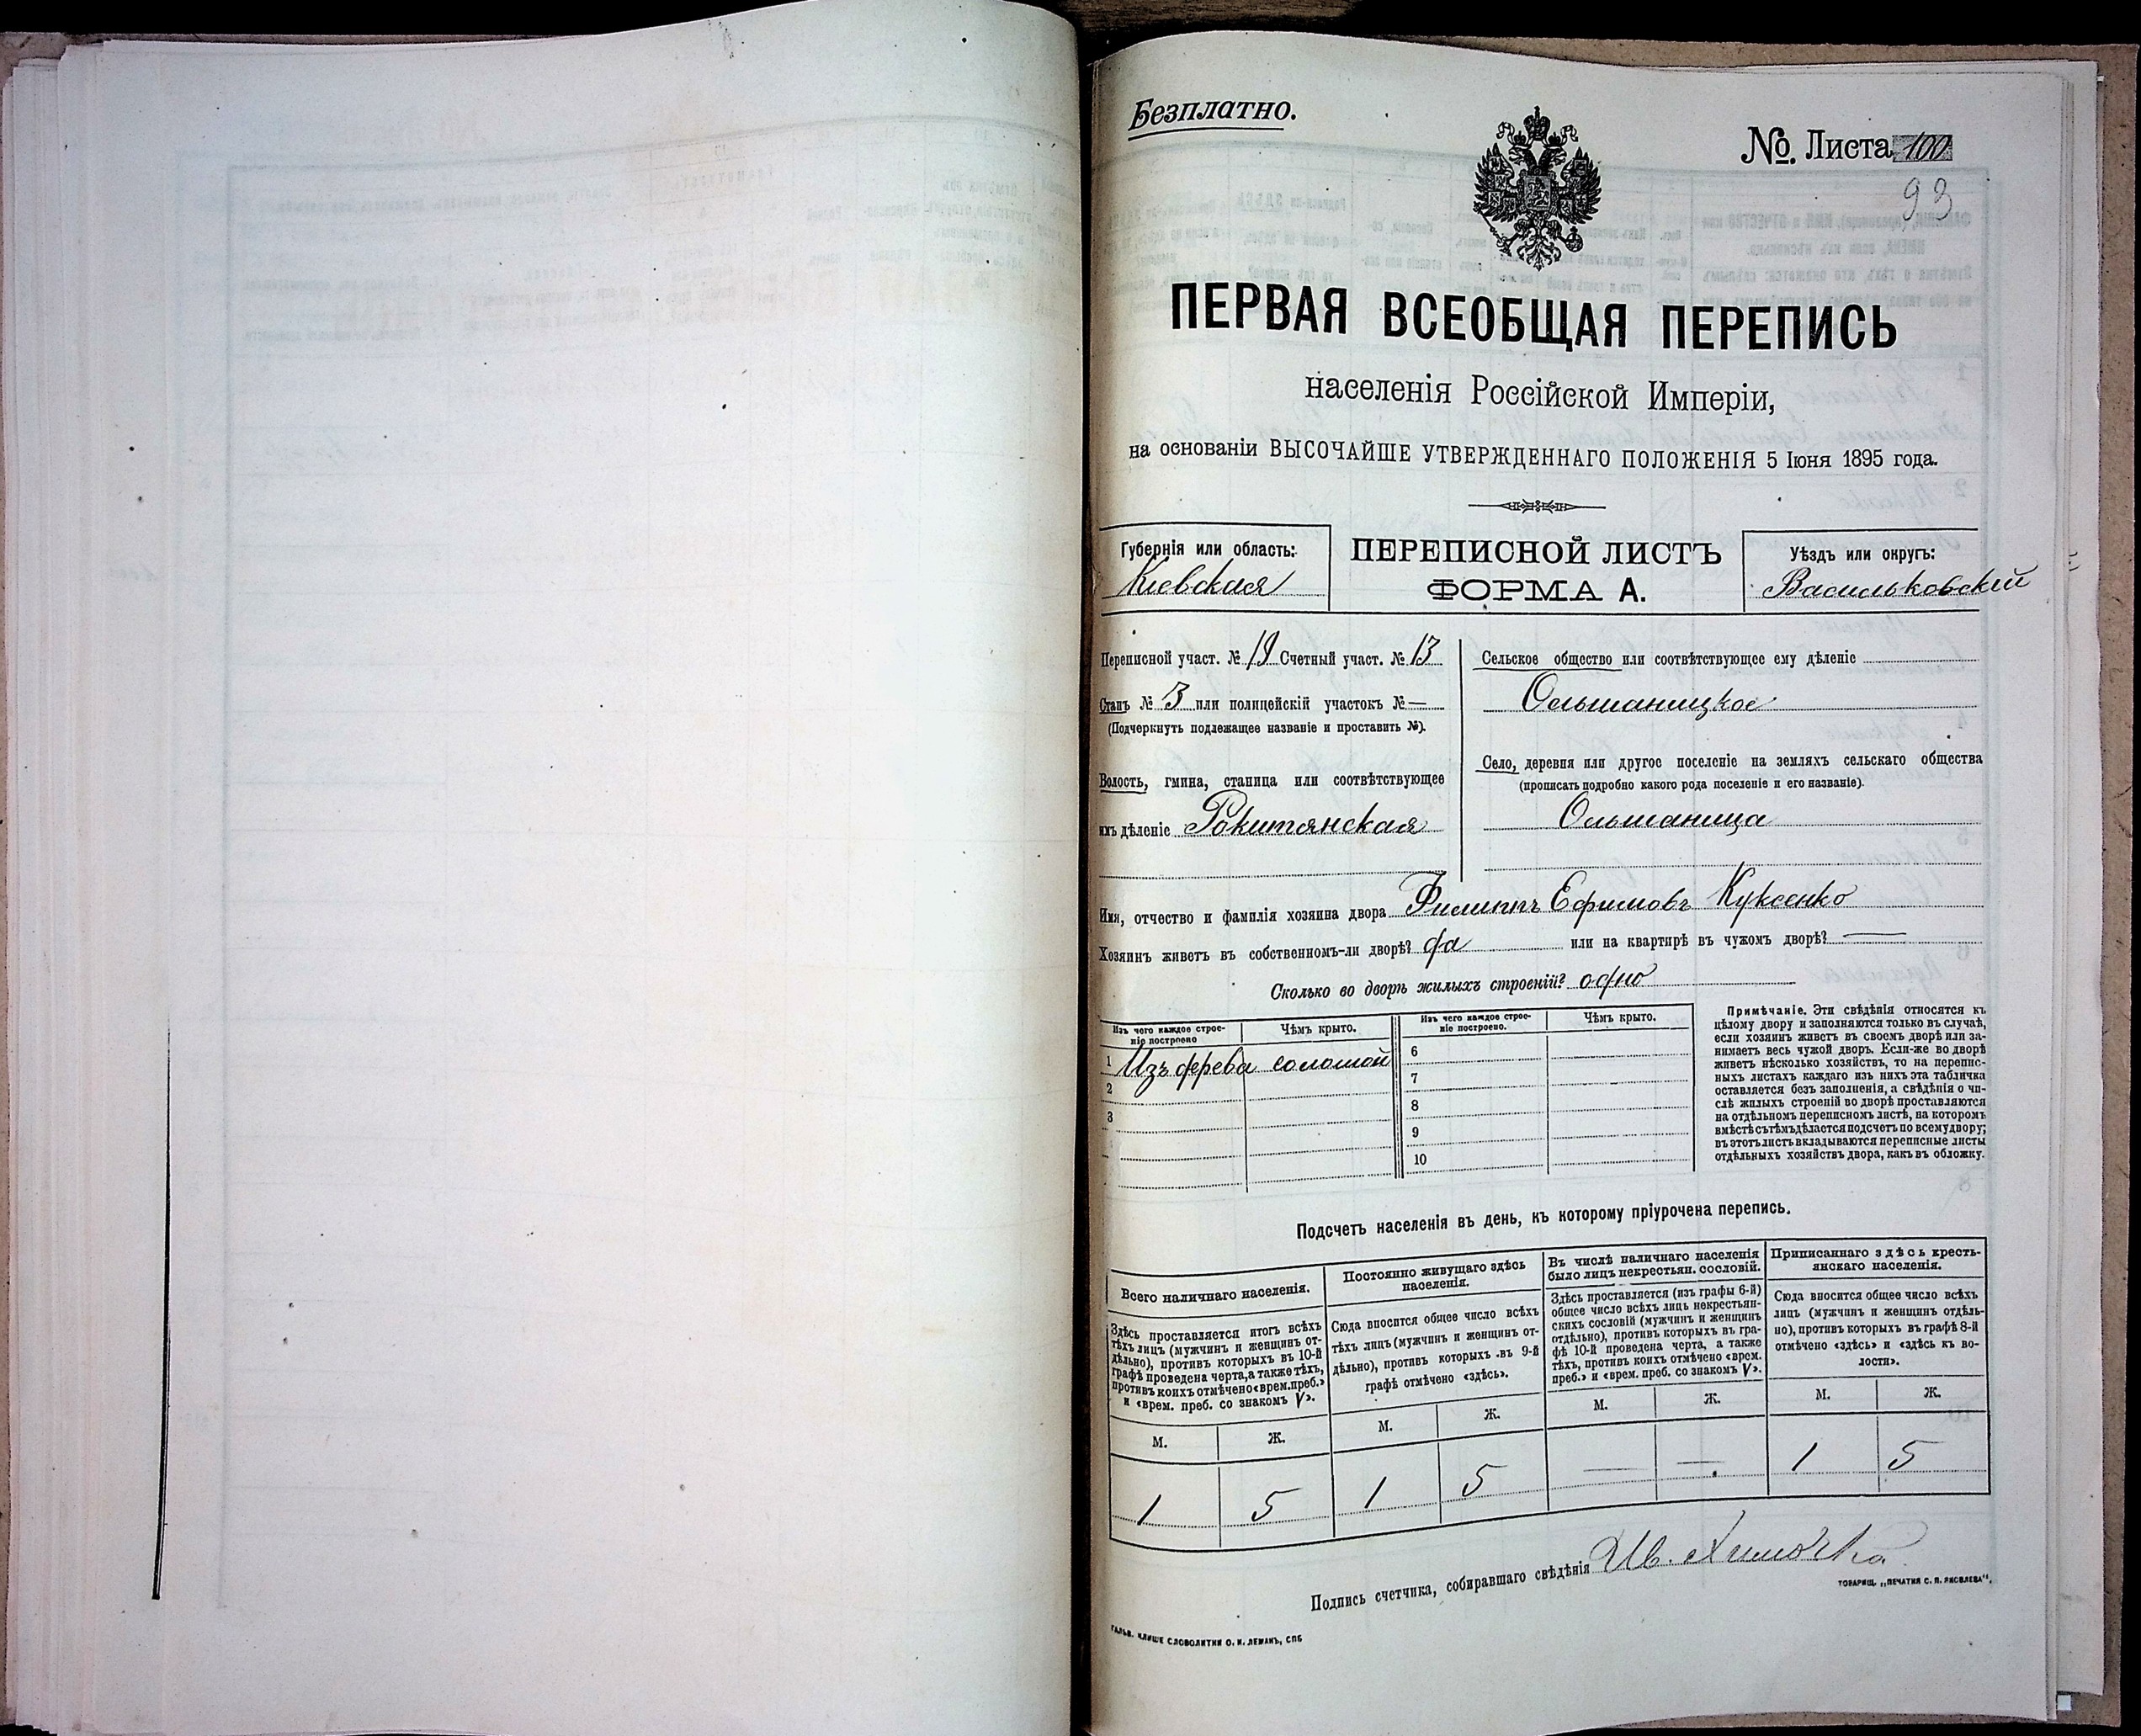 Безплатно.
№ Листа 100
93
ПЕРВАЯ ВСЕОБЩАЯ ПЕРЕПИСЬ
населенія Россійской Имперіи,
на основаніи ВЫСОЧАЙШЕ УТВЕРЖДЕННАГО ПОЛОЖЕНІЯ 5 Іюня 1895 года.
Губернія или область:
Кіевская
ПЕРЕПИСНОЙ ЛИСТЪ
ФОРМА А.
Уѣздъ или округъ:
Васильковскій
Переписной участ. № 19 Счетный участ. № 13
Станъ № 3 или полицейскій участокъ № —
(Подчеркнуть подлежащее названіе и проставить №).
Волость, гмина, станица или соотвѣтствующее
имъ дѣленіе Рокитянская
Сельское общество или соотвѣтствующее ему дѣленіе
Ольшаницкое
Село, деревня или другое поселеніе на земляхъ сельскаго общества
(прописать подробно какого рода поселеніе и его названіе).
Ольшаница
Имя, отчество и фамилія хозяина двора Филиппъ Ефимовъ Куксенко
Хозяинъ живетъ въ собственномъ-ли дворѣ? да или на квартирѣ въ чужомъ дворѣ? —
Сколько во дворѣ жилыхъ строеній? одно
Изъ чего каждое строе-
ніе построено
Чѣмъ крыто.
Изъ чего каждое строе-
ніе построено.
Чѣмъ крыто.
1 Изъ дерева соломой
2
3
6
7
8
9
10
Примѣчаніе. Эти свѣдѣнія относятся къ
цѣлому двору и заполняются только въ случаѣ,
если хозяинъ живетъ въ своемъ дворѣ или за-
нимаетъ весь чужой дворъ. Если-же во дворѣ
живетъ нѣсколько хозяйствъ, то на перепис-
ныхъ листахъ каждаго изъ нихъ эта табличка
оставляется безъ заполненія, а свѣдѣнія о чи-
слѣ жилыхъ строеній во дворѣ проставляются
на отдѣльномъ переписномъ листѣ, на которомъ
вмѣстѣ съ тѣмъ дѣлается подсчетъ по всему двору;
въ этотъ листъ вкладываются переписные листы
отдѣльныхъ хозяйствъ двора, какъ въ обложку.
Подсчетъ населенія въ день, къ которому пріурочена перепись.
Всего наличнаго населенія.
Здѣсь проставляется итогъ всѣхъ
тѣхъ лицъ (мужчинъ и женщинъ от-
дѣльно), противъ которыхъ въ 10-й
графѣ проведена черта, а также тѣхъ,
противъ коихъ отмѣчено «врем. преб.»
и «врем. преб. со знакомъ V».
М. Ж.
1 5
Постоянно живущаго здѣсь
населенія.
Сюда вносится общее число всѣхъ
тѣхъ лицъ (мужчинъ и женщинъ от-
дѣльно), противъ которыхъ въ 9-й
графѣ отмѣчено «здѣсь».
М. Ж.
1 5
Въ числѣ наличнаго населенія
было лицъ некрестьян. сословій.
Здѣсь проставляется (изъ графы 6-й)
общее число всѣхъ лицъ некрестьян-
скихъ сословій (мужчинъ и женщинъ
отдѣльно), противъ которыхъ въ гра-
фѣ 10-й проведена черта, а также
тѣхъ, противъ коихъ отмѣчено «врем.
преб.» и «врем. преб. со знакомъ V».
М. Ж.
— —
Приписаннаго здѣсь кресть-
янскаго населенія.
Сюда вносится общее число всѣхъ
лицъ (мужчинъ и женщинъ отдѣль-
но), противъ которыхъ въ графѣ 8-й
отмѣчено «здѣсь» и «здѣсь къ во-
лости».
М. Ж.
1 5
Подпись счетчика, собиравшаго свѣдѣнія Ив.
ТОВАРИЩ. „ПЕЧАТНЯ С. П. ЯКОВЛЕВА“.
ГАЛЬВ. КЛИШЕ СЛОВОЛИТНИ О. И. ЛЕМАНЪ, СПБ